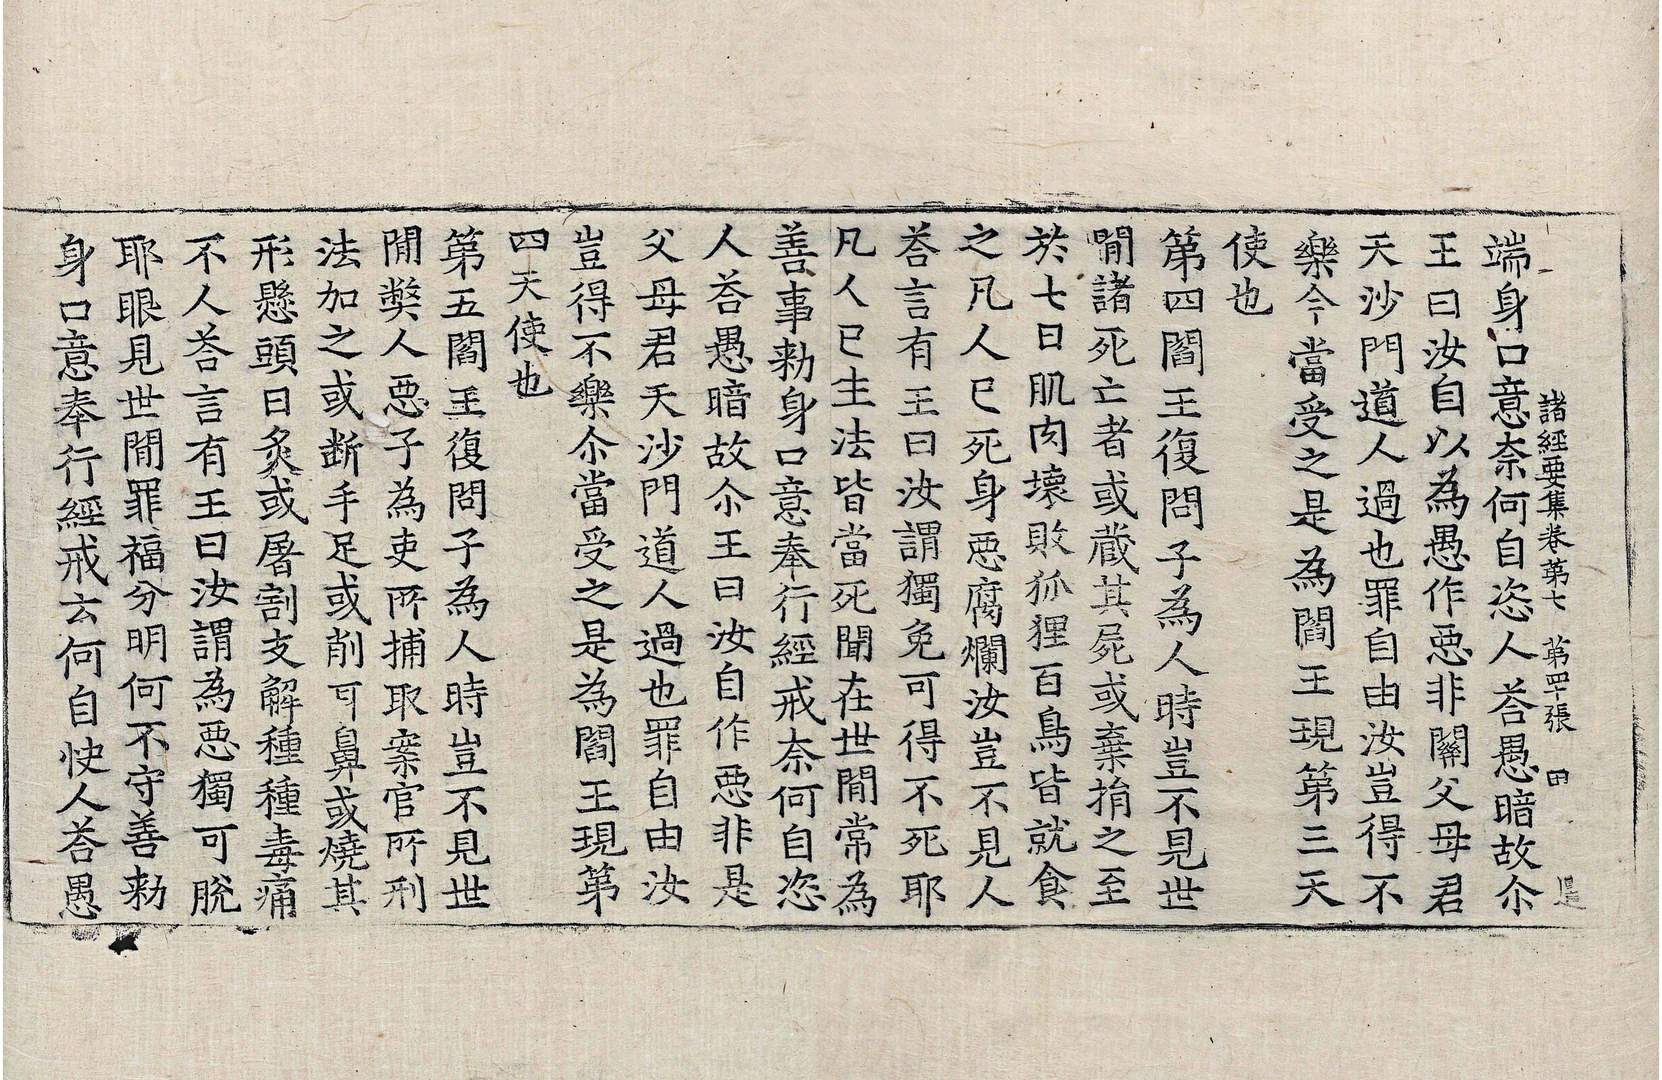 諸經要集卷第七 第四十張 田
端身口意奈何自恣人荅愚暗故尒
王曰汝自以為愚作惡非關父母君
天沙門道人過也罪自由汝豈得不
樂今當受之是為閻王現第三天
使也
第四閻王復問子為人時豈不見世
閒諸死亡者或藏其屍或棄捐之至
於七日肌肉壞敗狐狸百鳥皆就食
之凡人已死身惡腐爛汝豈不見人
荅言有王曰汝謂獨免可得不死耶
凡人已生法皆當死聞在世閒常為
善事勑身口意奉行經戒奈何自恣
人荅愚暗故尒王曰汝自作惡非是
父母君天沙門道人過也罪自由汝
豈得不樂尒當受之是為閻王現第
四天使也
第五閻王復問子為人時豈不見世
閒獘人惡子為吏所捕取案官所刑
法加之或断手足或削耳鼻或燒其
形懸頭日炙或屠割支解種種毒痛
不人荅言有王曰汝謂為惡獨可脫
耶眼見世閒罪福分明何不守善勑
身口意奉行經戒云何自快人荅愚